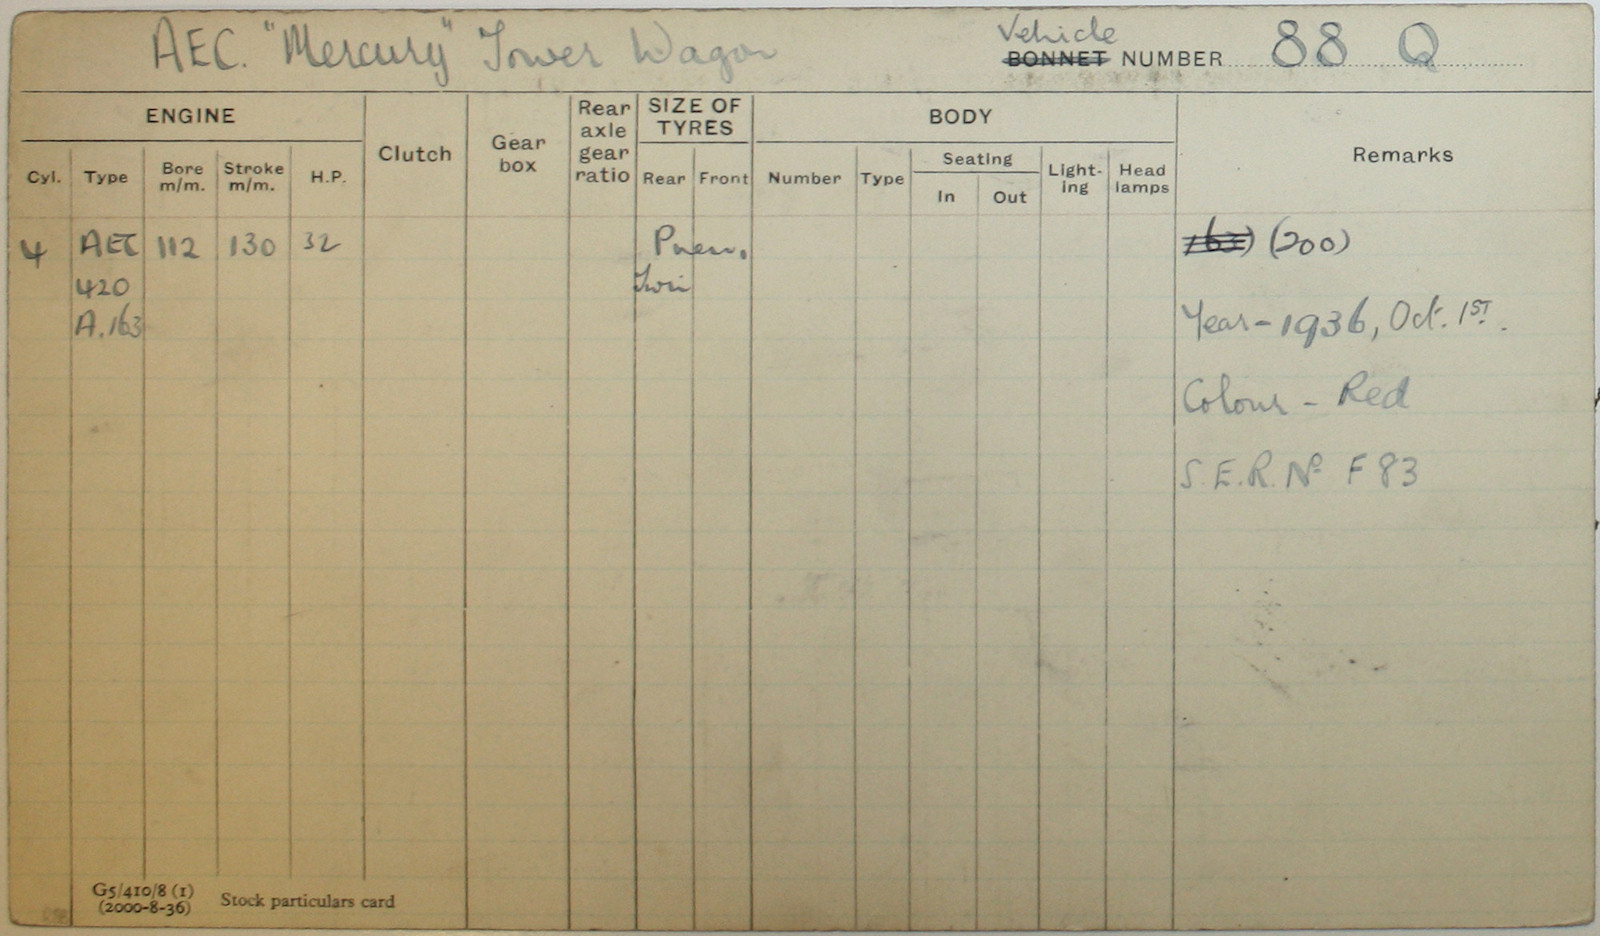 AEC. "Mercury" Tower Wagon
Vehicle
BONNET NUMBER 88 Q
ENGINE
Cyl.
Type
Bore
m/m.
Stroke
m/m.
H.P.
Clutch
Gear
box
Rear
axle
gear
ratio
SIZE OF
TYRES
Rear
Front
BODY
Number
Type
Seating
In
Out
Light-
ing
Head
lamps
Remarks
4 AEC 112 130 32 Pneu. (200)
420 Twin
A.163
Year - 1936, Oct. 1ST.
Colour - Red
S.E.R. No F 83
G5/410/8 (1)
(2000-8-36)
Stock particulars card